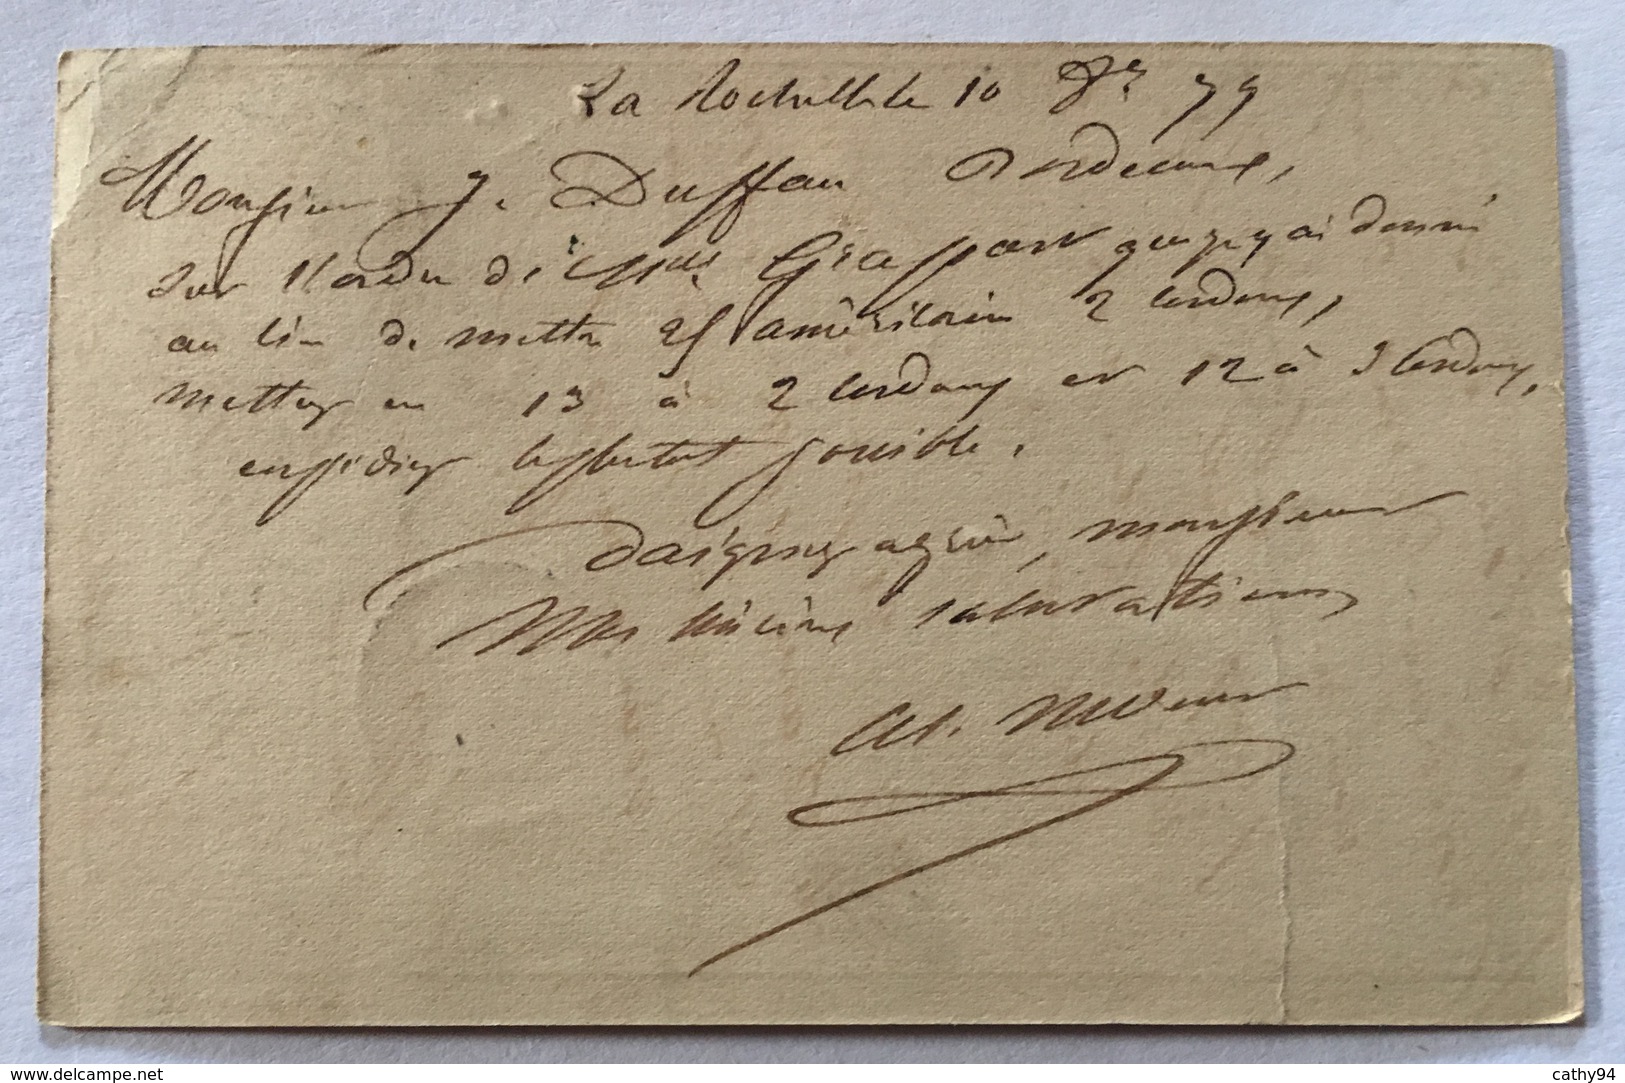 La Rochelle le 10 Xbre 79
Monsieur J. Duffau Bordeaux,
Sur l'ordre de Grassart que j'y ai donné
au lieu de mettre 25 américain 2 cordons,
mettez en 13 à 2 cordons et 12 à 3 cordons,
expédiez le plutot possible.
Daignez agréer, monsieur
Mes sincères salutations
www.delcampe.net
cathy94